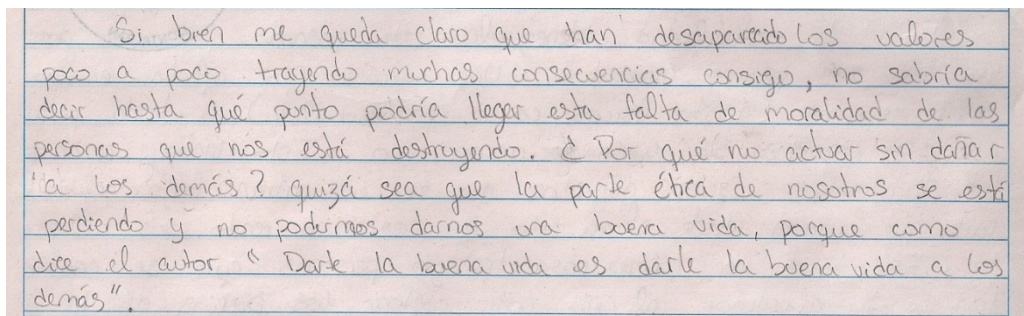 Si bien me queda claro que han desaparecido los valores
poco a poco trayendo muchas consecuencias consigo, no sabría
decir hasta qué punto podría llegar esta falta de moralidad de las
personas que nos está destruyendo. ¿Por qué no actuar sin dañar
a los demás? quizá sea que la parte ética de nosotros se está
perdiendo y no podermos darnos una buena vida, porque como
dice el autor "Darle la buena vida es darle la buena vida a los
demás".